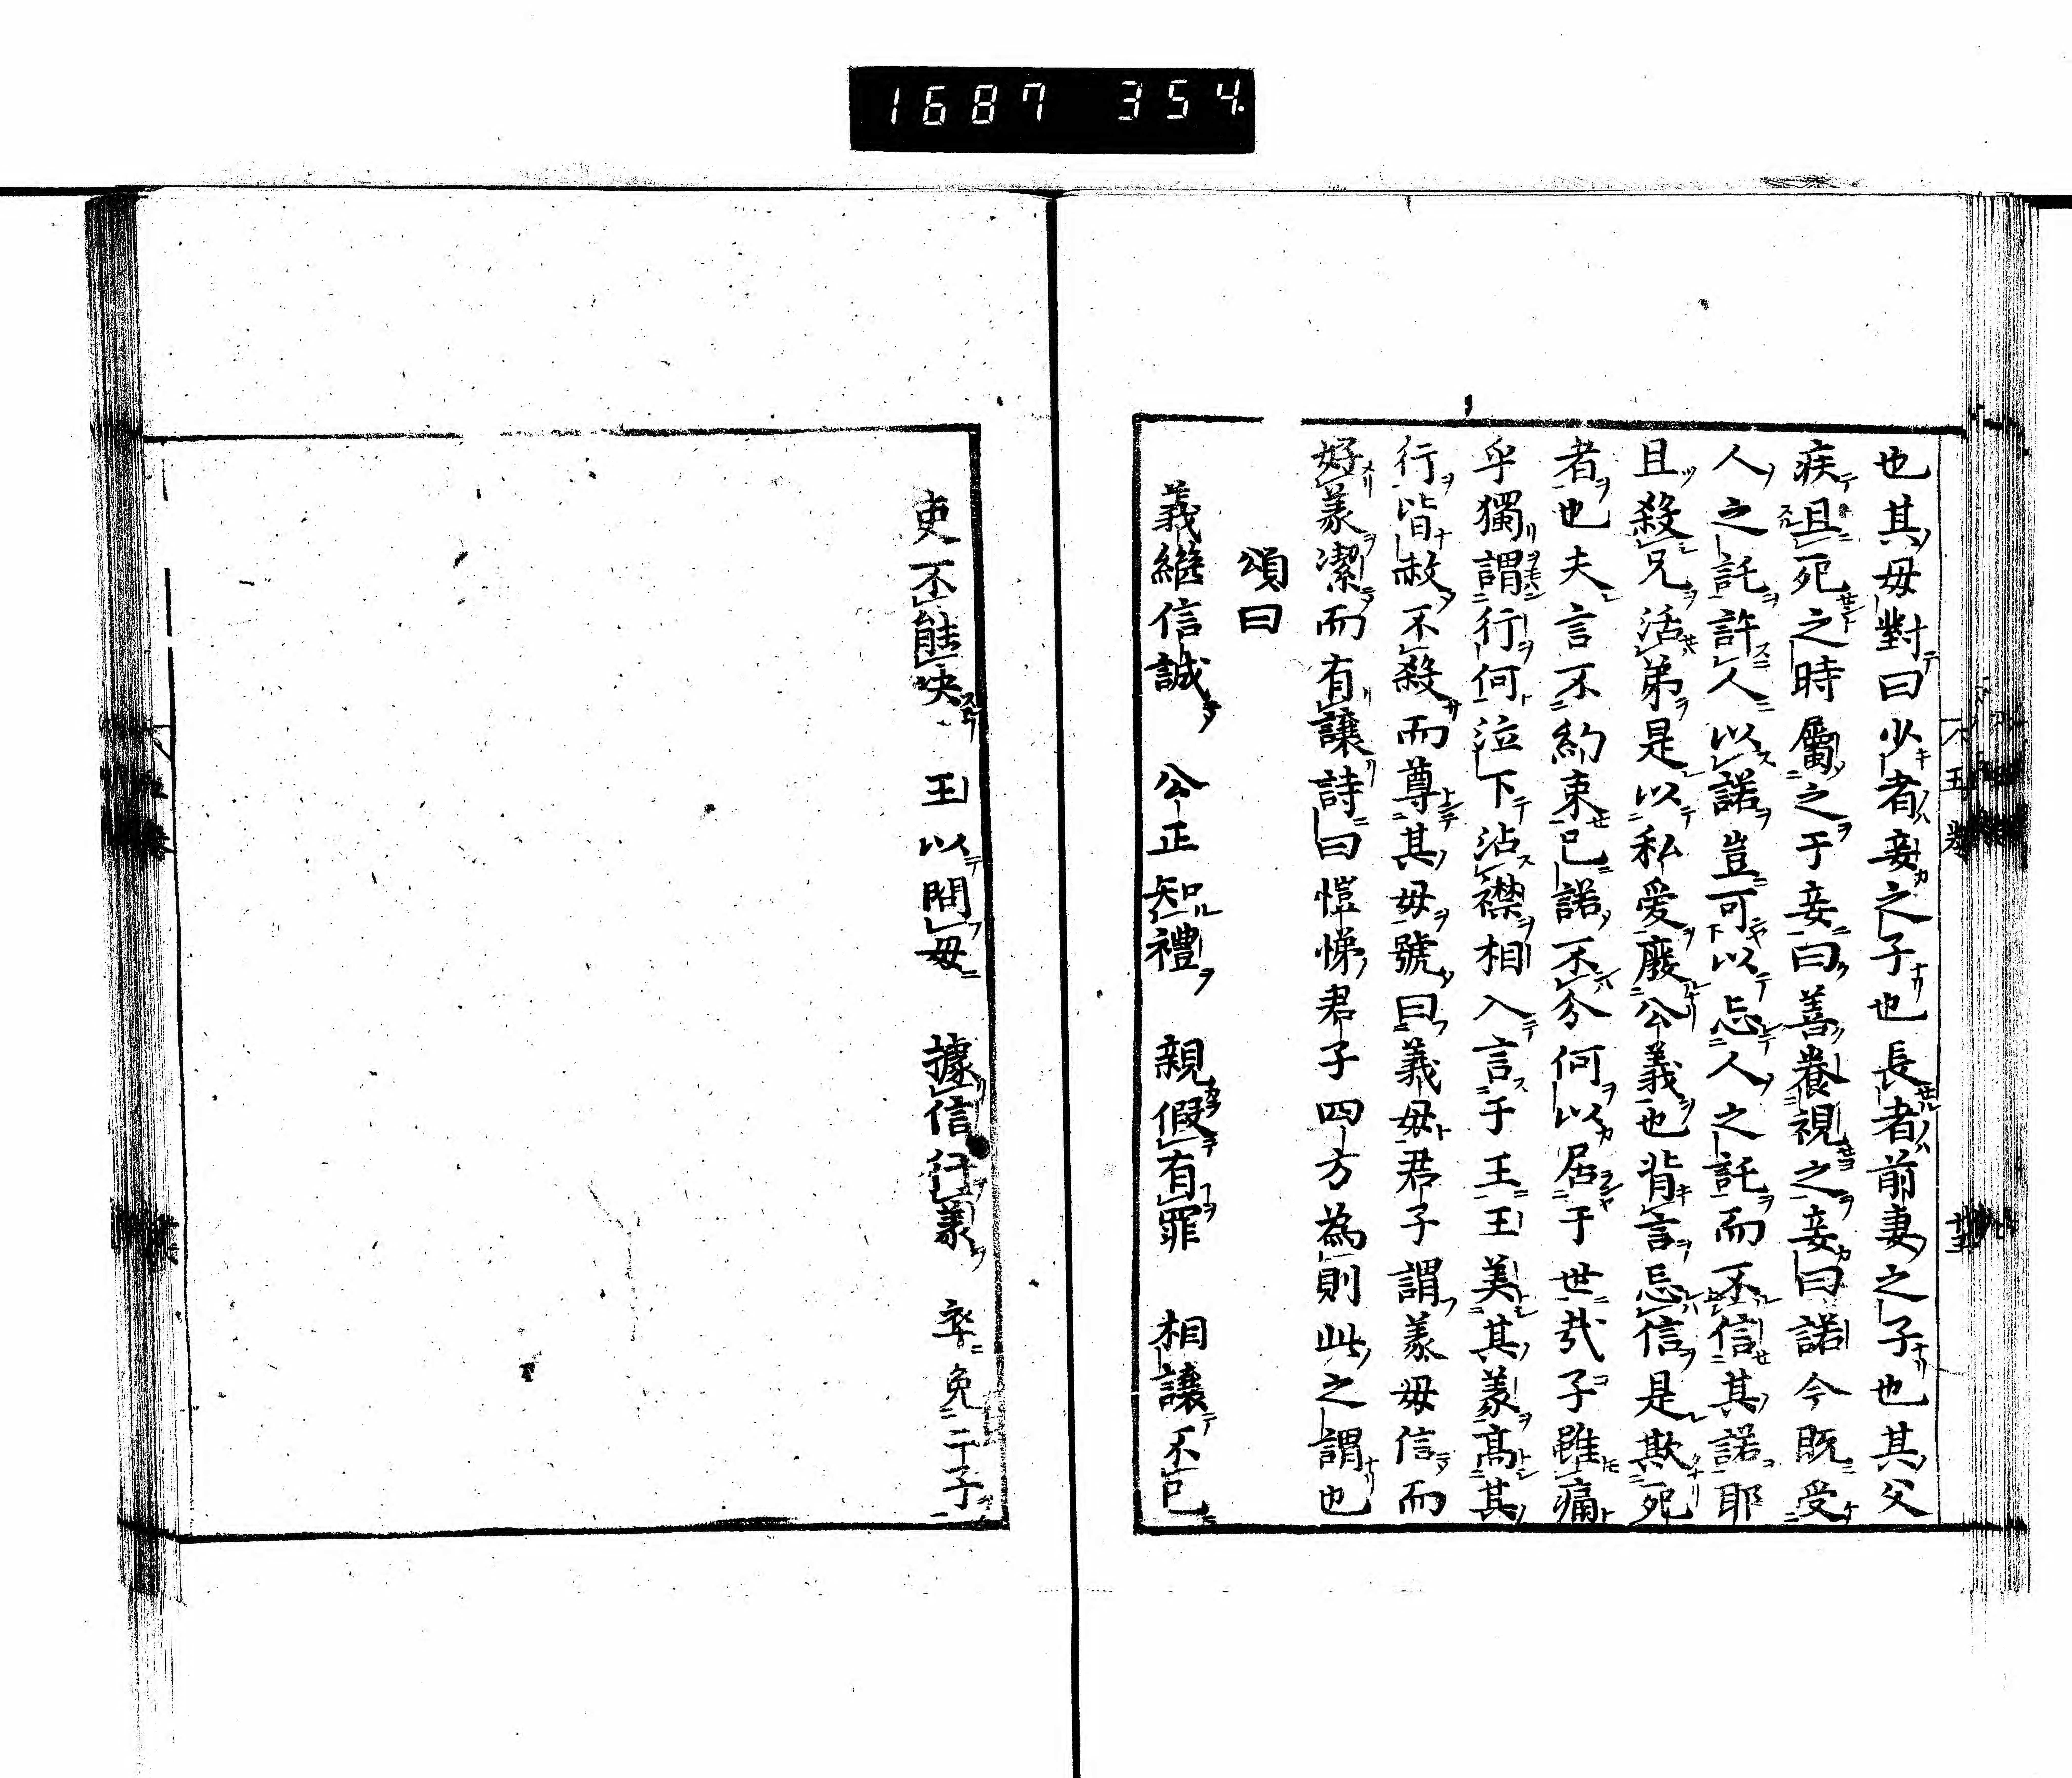 1687 354.
也其母對曰少者妾之子也長者前妻之子也其父
疾且死之時屬之于妾曰善養視之妾曰諾今既受
人之託許人以諾豈可以忘人之託而不信其諾耶
且殺兄活弟是以私愛廢公義也背言忘信是欺死
者也夫言不約束已諾不分何以居于世哉子雖痛
乎獨謂行何泣下沾襟相入言于王王美其義高其
行皆赦不殺而尊其母號曰義母君子謂義母信而
好義潔而有讓詩曰愷悌君子四方為則此之謂也
頌曰
義繼信誠　公正知禮　親假有罪　相讓不已
吏不能決　王以問母　據信行義　卒免二子